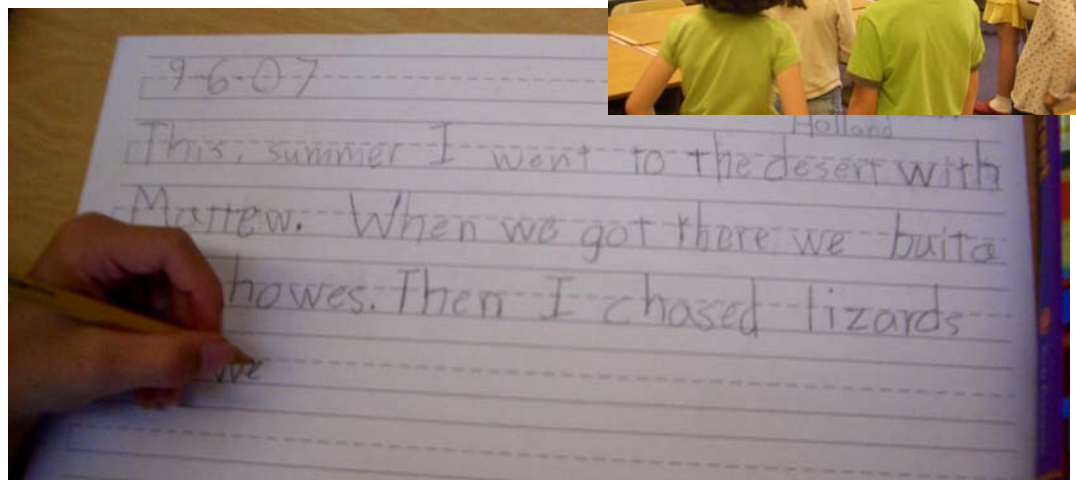 9-6-07
Holland
This, summer I went to the desert with
Mattew. When we got there we buita
howes. Then I chased lizards
we